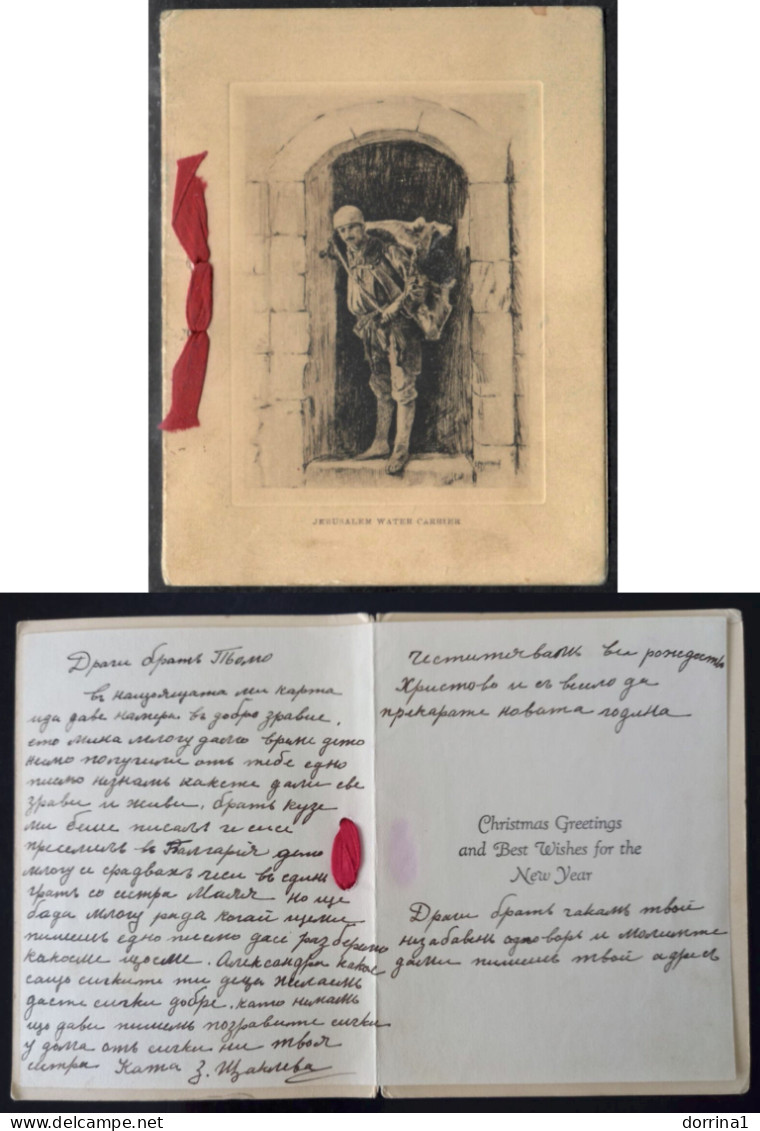 JERUSALEM WATER CARRIER
Драги братъ Томо
въ нащеящата ми карта
ида даве намера въ добро зравие,
ето мина млогу дасго време дето
немо получили отъ тебе едно
писмо незнамъ каксте дали све
зрави и живи, братъ кузе
ми беше писалъ че сисе
преселилъ въ Балгария дето
млогу се срадвахъ чеси въ единъ
гратъ со систра Мария но ще
бада млогу рада когай щеми
пишешъ едно писмо дасе разберемо
какосме щосме. Александра како
сащо сичките ти деца желаемъ
дасте сички добре, като немамъ
що дави пишемъ поздравите сички
у дома отъ сички ни твоя
систра Ката З.
Честитявамъ ви рождество
Христово и съ весело да
прекарате новата година
Christmas Greetings
and Best Wishes for the
New Year
Драги братъ чакамъ твой
незабавенъ одговоръ и молимте
дами пишешъ твой адресъ
delcampe.net
dorrina1